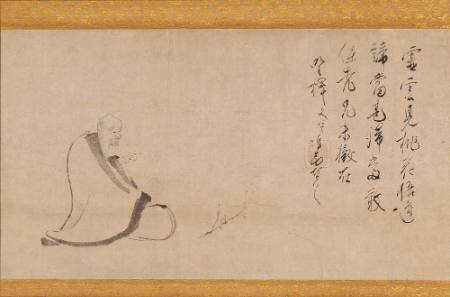 靈雲見桃花悟道
諦當甚諦當敢
保老兄未徹在
禅